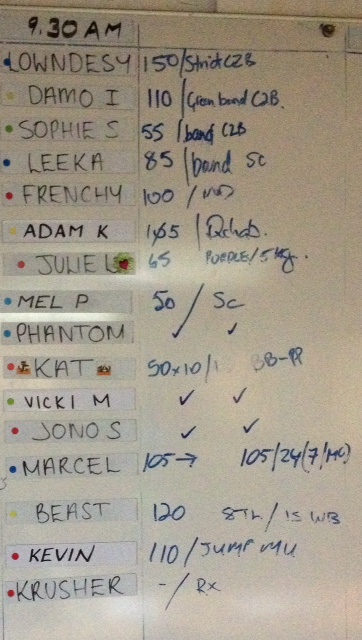 9.30 AM
LOWNDESY 150/Strict C2B
DAMO I 110/Green band C2B.
SOPHIE S 55/band C2B
LEEKA 85/band Sc
FRENCHY 100/
ADAM K 165/Rehab.
JULIE L 65 PURPLE/5kg.
MEL P 50/Sc
PHANTOM ✓ ✓
KAT 50x10/ BB-PP
VICKI M ✓ ✓
JONO S ✓ ✓
MARCEL 105→ 105/24(7/MU)
BEAST 120 /15 WB
KEVIN 110/JUMP MU
KRUSHER -/Rx